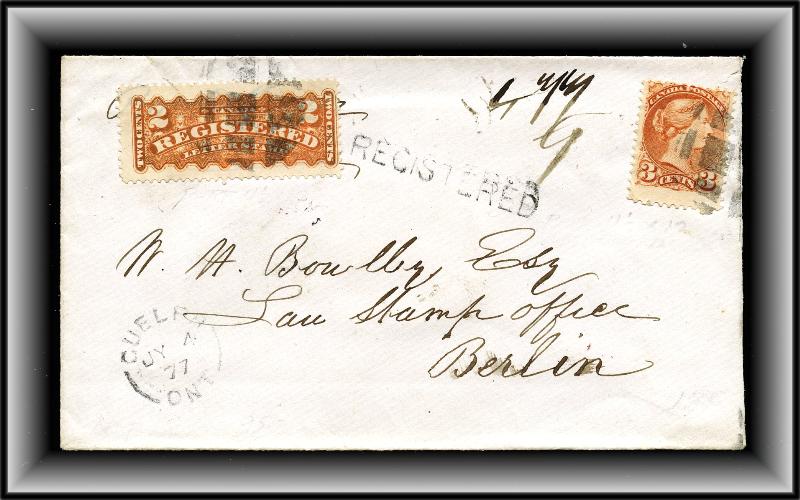 2 CANADA 2
TWO CENTS REGISTERED TWO CENTS
LETTER STAMP
CANADA POSTAGE
3 CENTS 3
REGISTERED
W. H. Bowlby, Esq
Law Stamp office
Berlin
GUELPH
JY 4
77
ONT